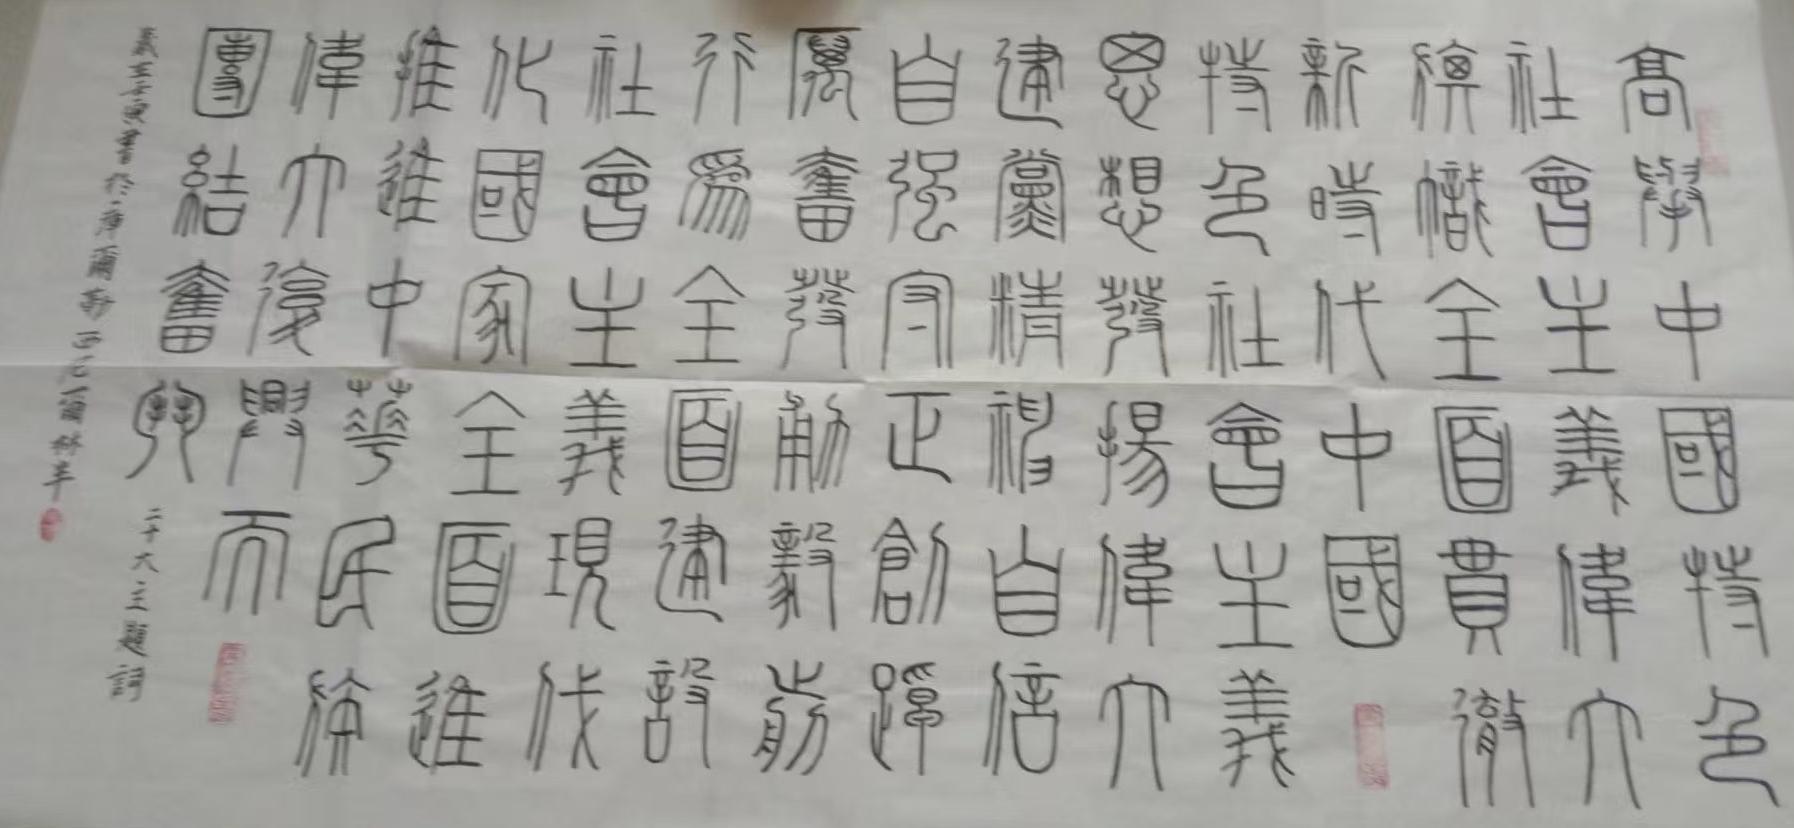 高舉中國特色
社會主義偉大
旗幟全面貫徹
新時代中國
特色社會主義
思想發揚偉大
建黨精神自信
自強守正創踔
厲奮發勇毅前
行為全面建設
社會主義現代
化國家全面進
推進中華民族
偉大復興而
團結奮鬥
二十大主題詞
歲在壬寅書於庫爾勒西尼爾